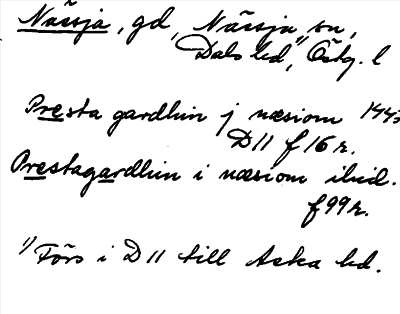 Nässja, gd, Nässja sn,
Dals hd¹⁾, Östg. l
Prestagardhin j næsiom 1447
D 11 f 16 r.
Prestagardhin i næsiom ibid.
f 99 r.
¹⁾ Förs i D 11 till Aska hd.